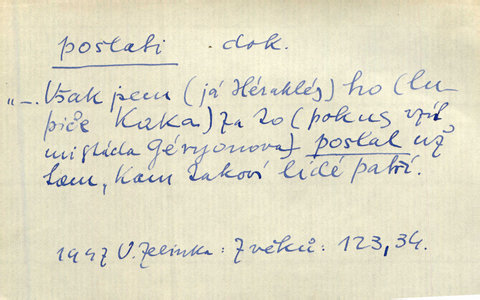 poslati . dok.
"–. Však jsem (já Hérakles) ho (lu-
piče Kaka) za to (pokus vzít
stáda Géryonova) poslal už
tam, kam takoví lidé patří.
1947 V. Zelinka: Z věků: 123, 34.